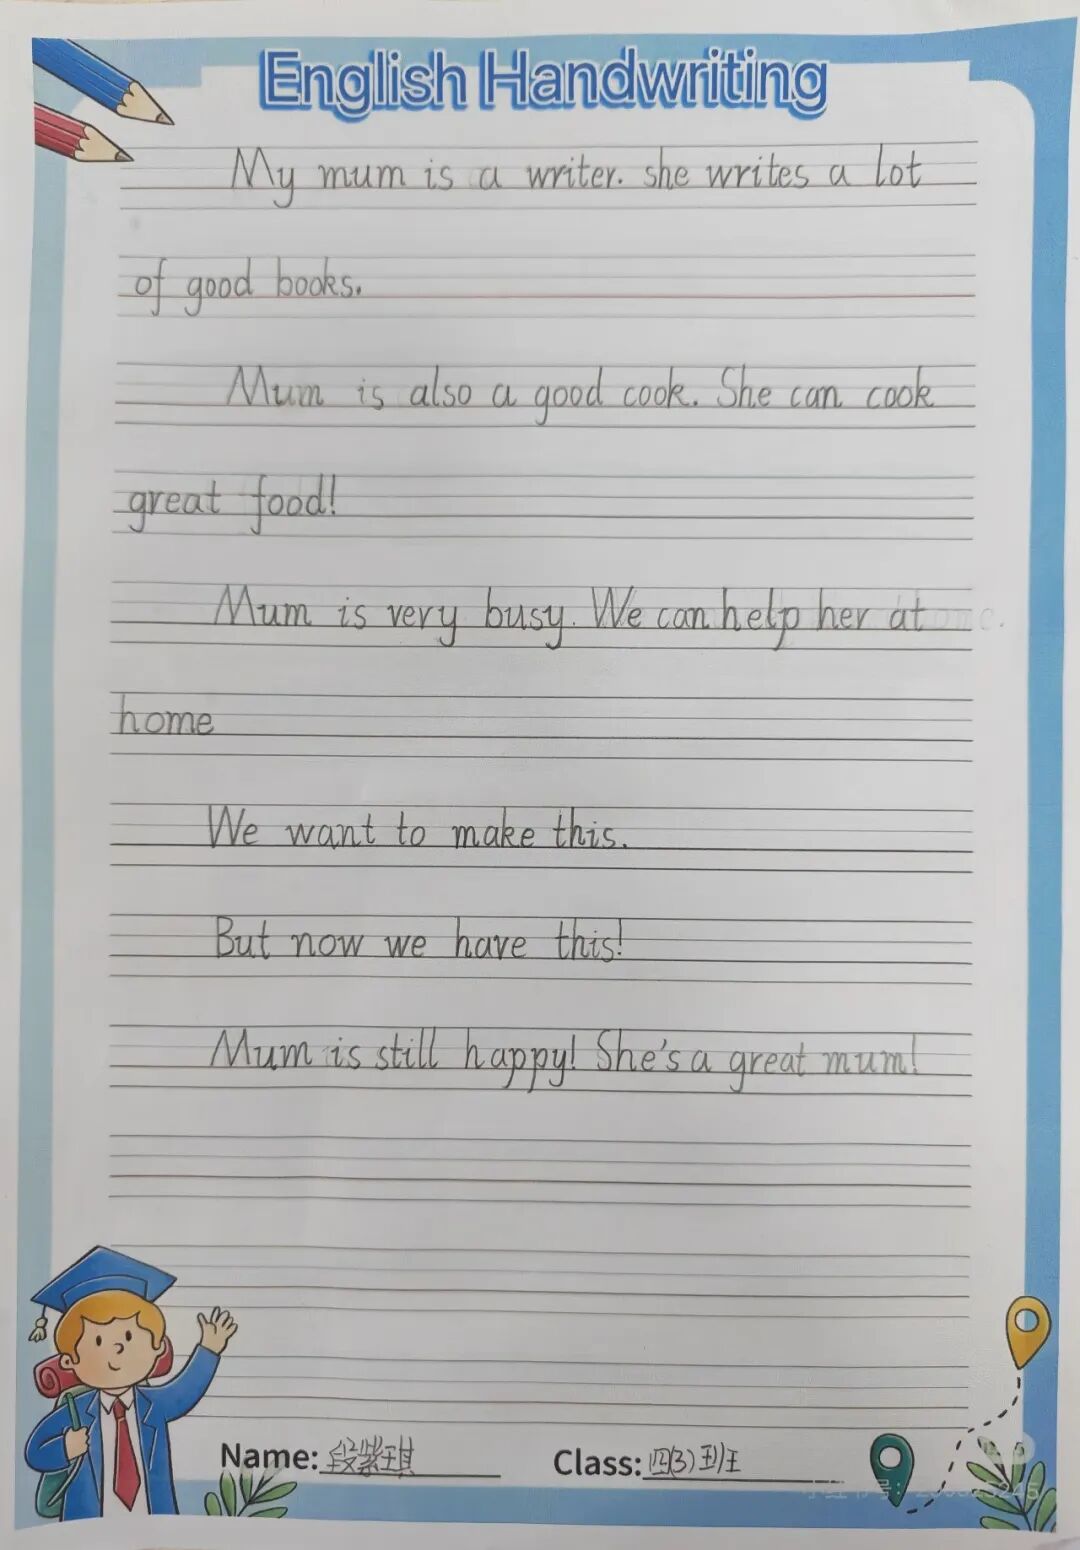 English Handwriting
My mum is a writer. she writes a lot
of good books.
Mum is also a good cook. She can cook
great food!
Mum is very busy. We can help her at
home
We want to make this.
But now we have this!
Mum is still happy! She's a great mum!
Name: 段紫琪 Class: 四(3)班
小红书号: